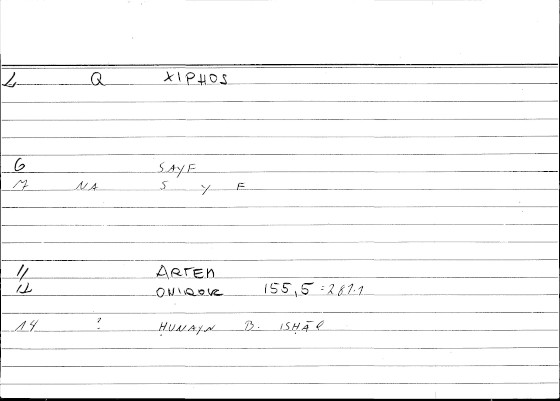 1 Q XIPHOS
6 SAYF
7 NA S Y F
11 ARTEM
12 ONIROK 155,5 = 281.1
14 ? ḤUNAYN B. ISḤĀQ